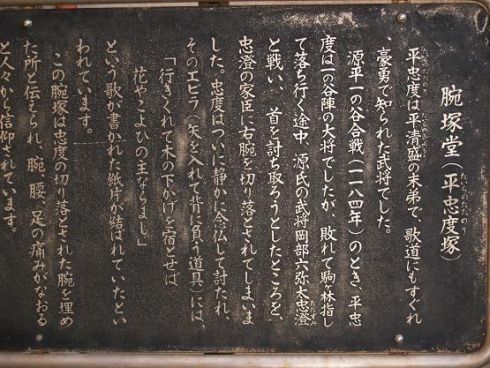 腕塚堂（平忠度塚）
たいらのただのり
平忠度は平清盛の末弟で、歌道にもすぐれ
、豪勇で知られた武将でした。
源平一の谷合戦（一一八四年）のとき、平忠
度は一の谷陣の大将でしたが、敗れて駒ヶ林指し
て落ち行く途中、源氏の武将岡部六弥太忠澄
と戦い、首を討ち取ろうとしたところを、
忠澄の家臣に右腕を切り落とされてしまいま
した。忠度はついに静かに念仏して討たれ、
そのエビラ（矢を入れて背に負う道具）には、
「行きくれて木の下かげを宿とせば
花やこよひの主ならまし」
という歌が書かれた紙片が結ばれていたとい
われています。
この腕塚は忠度の切り落とされた腕を埋め
た所と伝えられ、腕、腰、足の痛みがなおる
と人々から信仰されています。